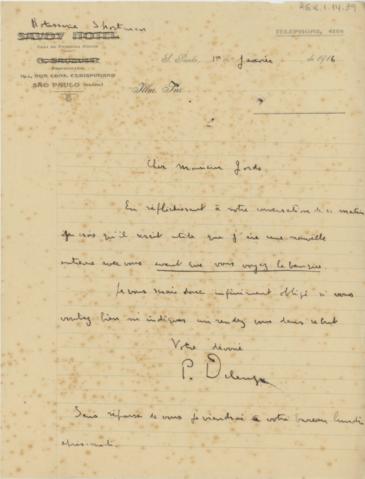 REK.1.14.89
Rotisserie Sportsman
SAVOY HOTEL
PROPRIETARIO
SÃO PAULO
TELEPHONE,
S. Paulo, 1er Janvier de 1916
Illmo. Snr.
Cher Monsieur Jordo
En réfléchissant à notre conversation de ce matin
je crois qu'il serait utile que j'aie une nouvelle
entrevue avec vous avant que vous voyez la banque.
Je vous serais donc infiniment obligé si vous
voulez bien m'indiquer un rendez vous dans ce but
Votre dévoué
P. Deleuze
Sans réponse de vous je viendrai à votre bureau lundi
après-midi.